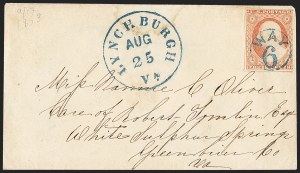 LYNCHBURGH
AUG
25
Va
U.S. POSTAGE
6
Miss Nannie C. Oliver
Care of Robert Tomlin Esq
White Sulphur Springs
Greenbrier Co
Va